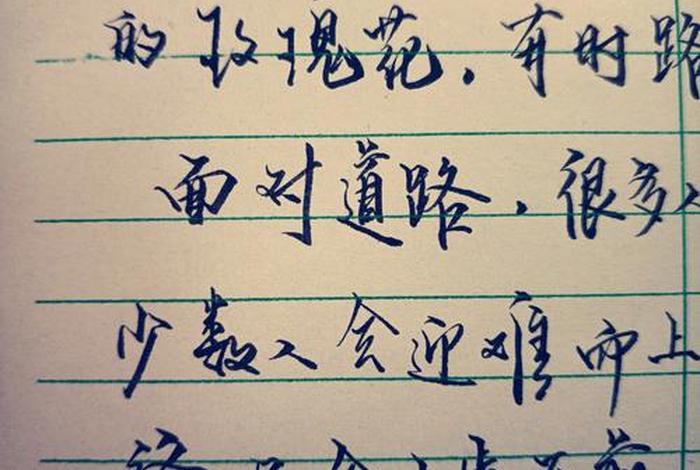 的玫瑰花.有时路
面对道路.很多人
少数人会迎难而上